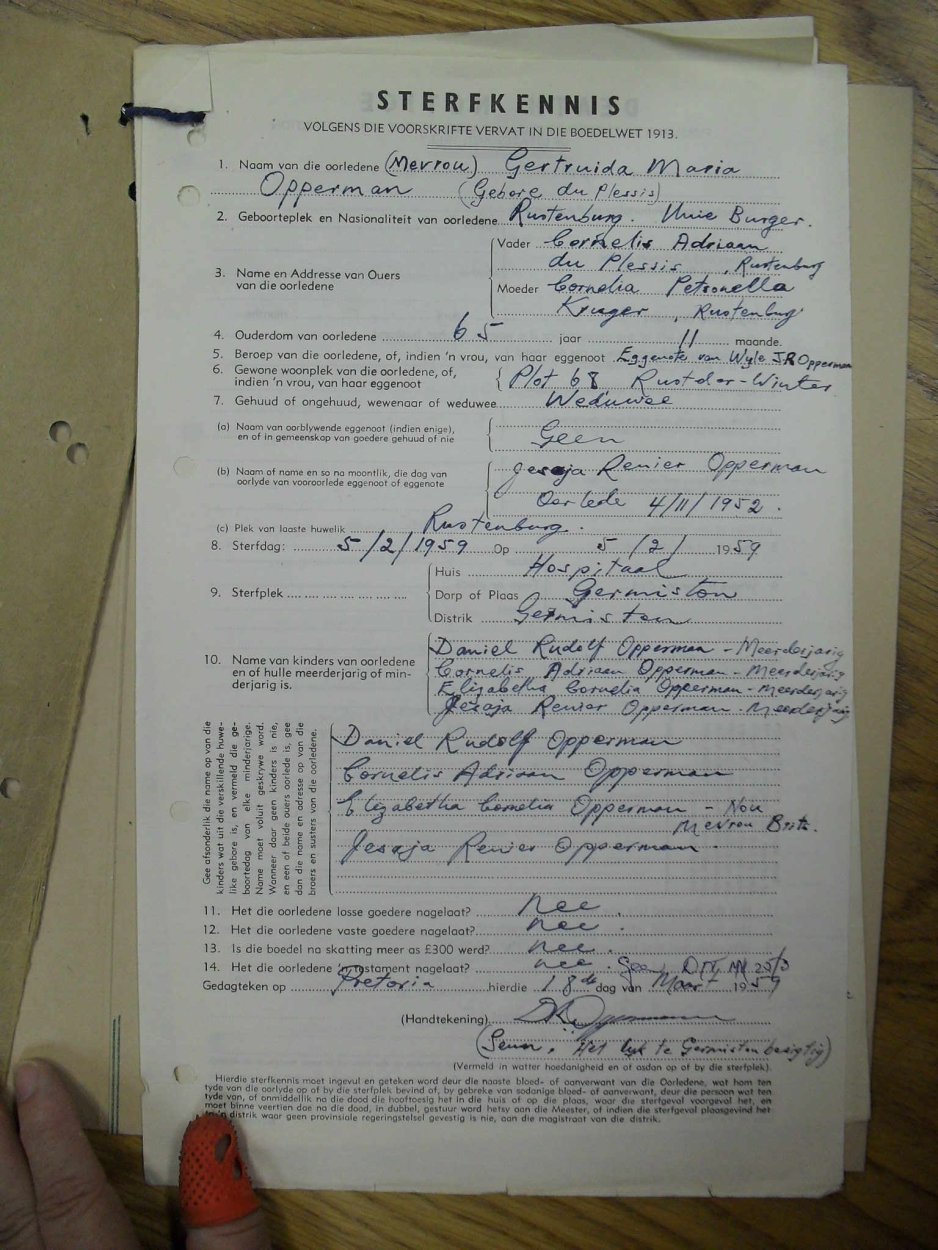 STERFKENNIS
VOLGENS DIE VOORSKRIFTE VERVAT IN DIE BOEDELWET 1913.
1. Naam van die oorledene (Mevrou) Gertruida Maria
Opperman (Gebore du Plessis)
2. Geboorteplek en Nasionaliteit van oorledene Rustenburg. Unie Burger.
3. Name en Addresse van Ouers van die oorledene
Vader Cornelis Adriaan
du Plessis, Rustenburg
Moeder Cornelia Petronella
Kruger, Rustenburg
4. Ouderdom van oorledene 65 jaar 11 maande.
5. Beroep van die oorledene, of, indien 'n vrou, van haar eggenoot Eggenote van Wyle J.R Opperman
6. Gewone woonplek van die oorledene, of,
indien 'n vrou, van haar eggenoot Plot 68 Rust-der-Winter
7. Gehuud of ongehuud, wewenaar of weduwee Weduwee
(a) Naam van oorblywende eggenoot (indien enige),
en of in gemeenskap van goedere gehuud of nie Geen
(b) Naam of name en so na moontlik, die dag van
oorlyde van vooroorlede eggenoot of eggenote
Jesaja Renier Opperman
Oorlede 4/11/1952.
(c) Plek van laaste huwelik Rustenburg.
8. Sterfdag: 5/2/1959 Op 5/2/ 1959
9. Sterfplek
Huis Hospitaal
Dorp of Plaas Germiston
Distrik Germiston
10. Name van kinders van oorledene
en of hulle meerderjarig of min-
derjarig is.
Daniel Rudolf Opperman - Meerderjarig
Cornelis Adriaan Opperman - Meerderjarig
Elizabetha Cornelia Opperman - Meerderjarig
Jesaja Renier Opperman - Meerderjarig
Gee afsonderlik die name op van die
kinders wat uit die verskillende huwe-
like gebore is, en vermeld die ge-
boortedag van elke minderjarige.
Name moet voluit geskrywe word.
Wanneer daar geen kinders is nie,
en een of beide ouers oorlede is, gee
dan die name en adresse op van die
broers en susters van die oorledene.
Daniel Rudolf Opperman
Cornelis Adriaan Opperman
Elizabetha Cornelia Opperman - Nou
Mevrou Brits.
Jesaja Renier Opperman.
11. Het die oorledene losse goedere nagelaat? nee.
12. Het die oorledene vaste goedere nagelaat? nee.
13. Is die boedel na skatting meer as £300 werd? nee.
14. Het die oorledene 'n testament nagelaat? nee. Geen
Gedagteken op Pretoria hierdie 18de dag van Maart 1959
(Handtekening)
(Seun. Het lyk te Germiston besigtig)
(Vermeld in watter hoedanigheid en of asdan op of by die sterfplek).
Hierdie sterfkennis moet ingevul en geteken word deur die naaste bloed- of aanverwant van die Oorledene, wat hom ten
tyde van die oorlyde op of by die sterfplek bevind of, by gebreke van sodanige bloed- of aanverwant, deur die persoon wat ten
tyde van, of onmiddellik na die dood die hooftoesig het in die huis of op die plaas, waar die sterfgeval voorgeval het, en
moet binne veertien dae na die dood, in dubbel, gestuur word hetsy aan die Meester, of indien die sterfgeval plaasgevind het
in 'n distrik waar geen provinsiale regeringstelsel gevestig is nie, aan die magistraat van die distrik.